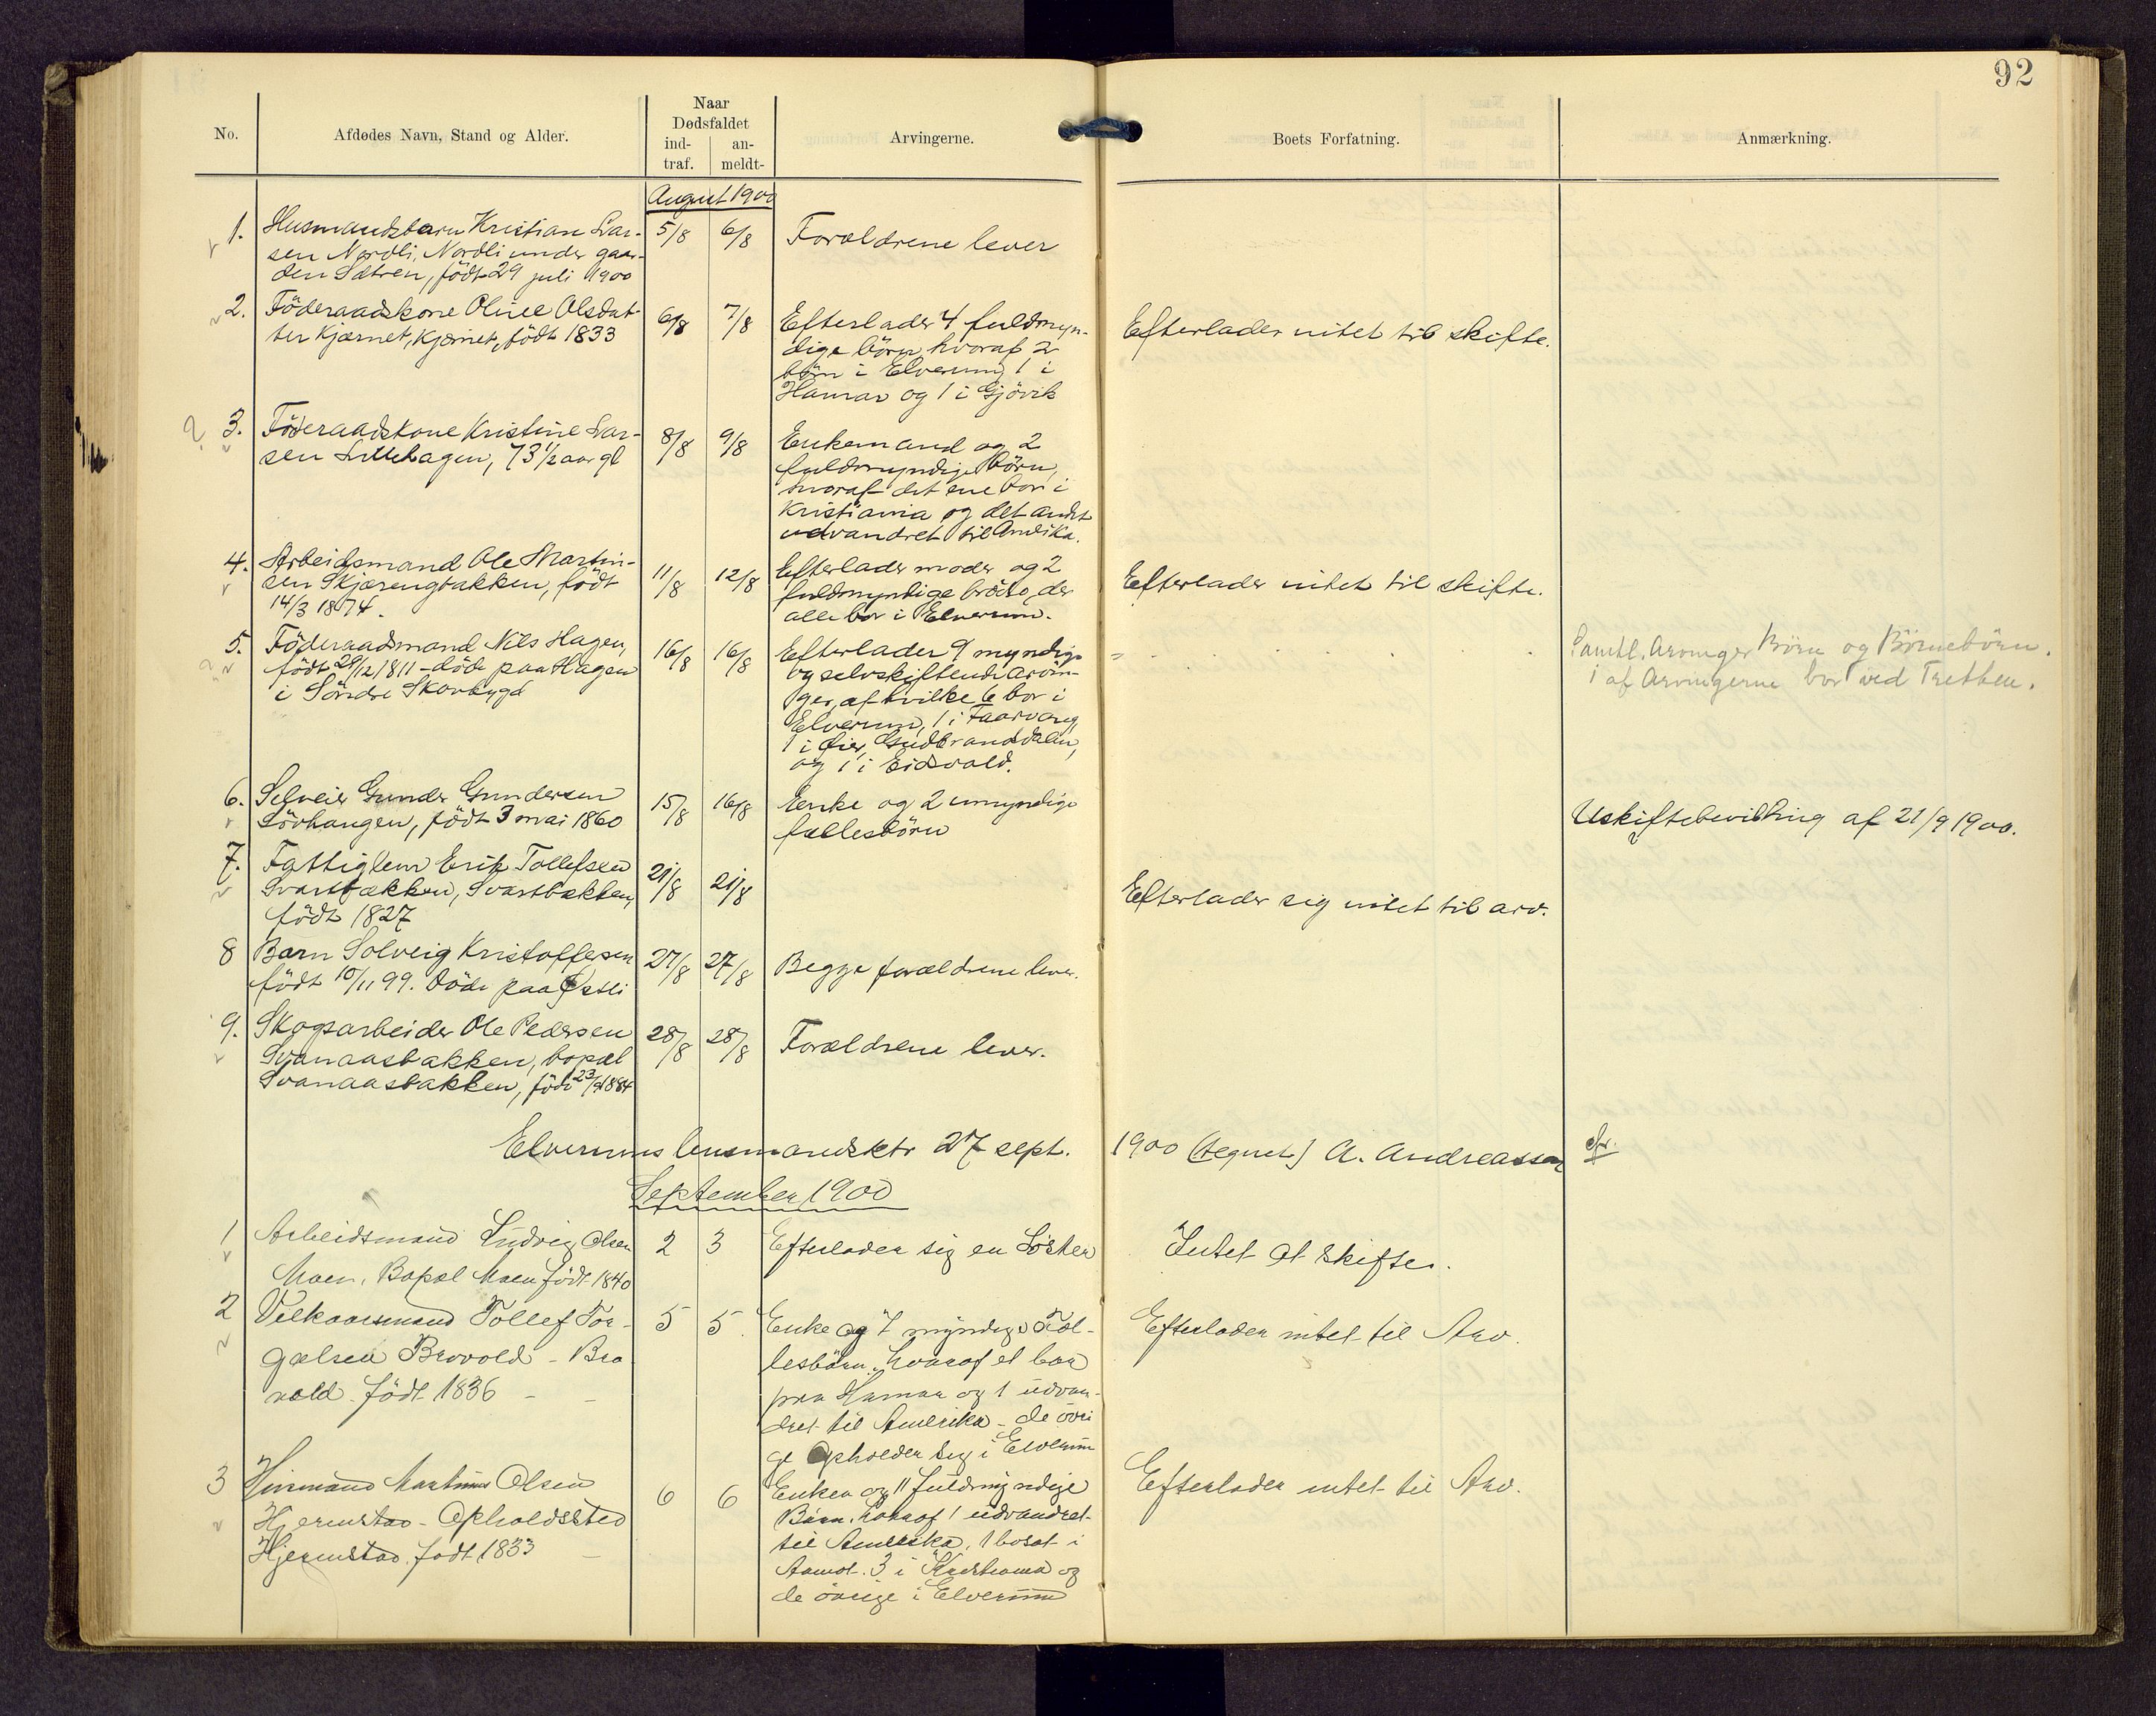 92
No.
Afdødes Navn, Stand og Alder.
Naar
Dødsfaldet
ind-
traf.
an-
meldt-
Arvingerne.
Boets Forfatning.
Anmærkning.
August 1900
1. Husmandsbarn Kristian Lar-
sen Nordli, Nordli under gaar-
den Sætren, födt 29 juli 1900
5/8 6/8
Forældrene lever
2. Föderaadskone Oline Olsdat-
ter Kjærnet, Kjærnet, födt 1833
6/8 7/8
Efterlader 4 fuldmyn-
dige börn, hvoraf 2
börn i Elverum, 1 i
Hamar og 1 i Gjövik
Efterlader intet til skifte.
3. Föderaadskone Kristine Lar-
sen Lillehagen, 73 1/2 aar gl
8/8 9/8
Enkemand og 2
fuldmyndige börn,
hvoraf det ene bor i
Kristiania og det andet
udvandret til Amerika.
4. Arbeidsmand Ole Martin-
sen Skjærengbakken, födt
14/3 1874.
11/8 12/8
Efterlader moder og 2
fuldmyndige brödre, der
alle bor i Elverum.
Efterlader intet til skifte.
5. Föderaadsmand Nils Hagen,
födt 29/12 1811 - döde paa Hagen
i Söndre Skovbygd
16/8 16/8
Efterlader 9 myndige
og selvskiftende arvin-
ger, af hvilke 6 bor i
Elverum, 1 i Faarvang,
1 i Øier, Gudbrandsdalen,
og 1 i Eidsvold.
Samtl. Arvinger Börn og Börnebörn.
1 af Arvingerne bor ved Tretten.
6. Selveier Gunder Gundersen
Lövhaugen, födt 3 mai 1860
15/8 16/8
Enke og 2 umyndige
fællesbörn
Uskiftebevilling af 21/9 1900.
7. Fattiglem Erik Tollefsen
Svartbækken, Svartbækken,
födt 1827
21/8 21/8
Efterlader sig intet til arv.
8 Barn Solveig Kristoffersen
födt 10/11 99. Döde paa
27/8 27/8
Begge forældrene lever.
9. Skogsarbeider Ole Pedersen
Svanaasbakken, bopæl
Svanaasbakken, födt 23/9 1884
28/8 28/8
Forældrene lever.
Elverums lensmandsktr 27 sept. 1900 (tegnet) A. Andreassen
September 1900
1 Arbeidsmand Ludvig Olsen
Moen, Bopæl Moen födt 1840
2 3
Efterlader sig en Söster
Intet at skifte.
2 Vilkaarsmand Tollef Tor-
gælsen Brovold - Bro
vold. födt 1836 -
5 5
Enke og 7 myndige Fæl-
lesbörn, hvoraf et bor
paa Hamar og 1 udvan-
dret til Amerika - de övri
ge opholder sig i Elverum
Efterlader intet til Arv.
3 Husmand Martinus Olsen
Hjermstad - Opholdssted
Hjermstad. födt 1833
6 6
Enken og 11 fuldmyndige
Börn, hvoraf 1 udvandret
til Amerika, 1 bosat i
Aamot. 3 i Kristiania og
de övrige i Elverum
Efterlader intet til Arv.